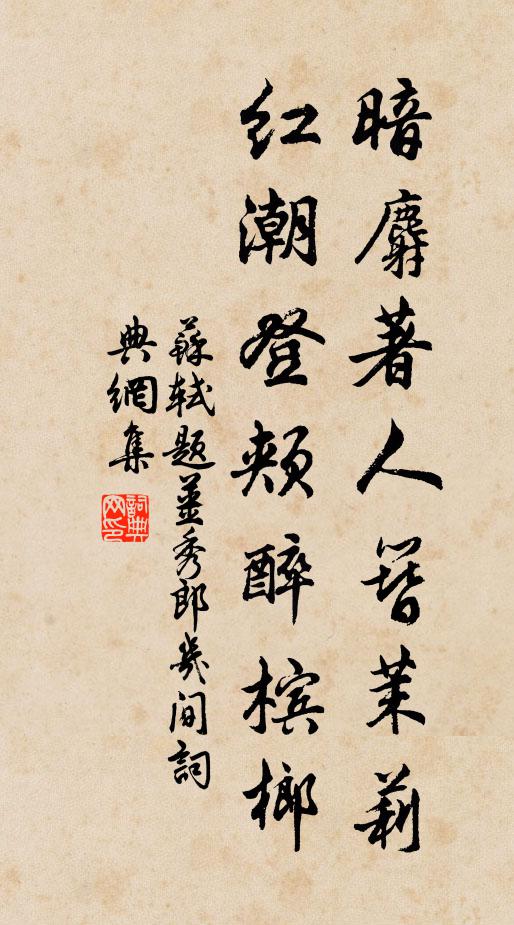 暗麝著人簪茉莉
红潮登颊醉槟榔
蘇軾题姜秀郎幾间詞
典網集
詞典网印